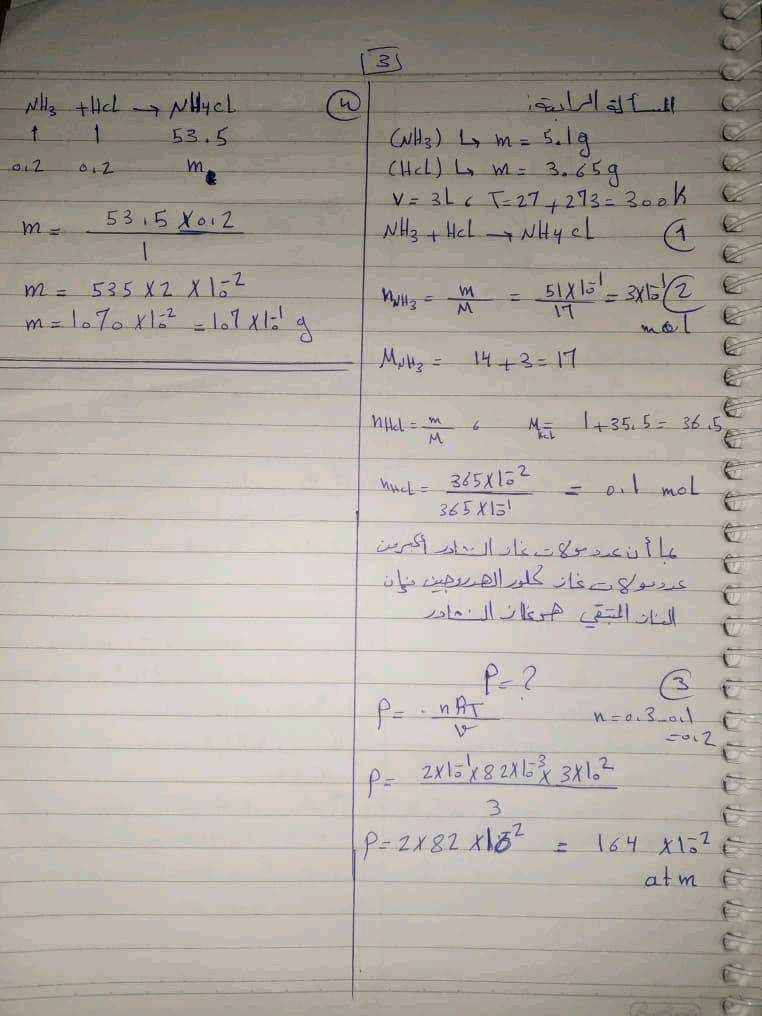 3
المسألة الرابعة:
(NH3) ↳ m = 5.1g
(HCl) ↳ m = 3.65g
V = 3L ، T = 27 + 273 = 300K
NH3 + HCl → NH4Cl ①
nNH3 = m/M = 51×10^-1/17 = 3×10^-1 mol ②
MNH3 = 14 + 3 = 17
nHCl = m/M ، MHCl = 1 + 35.5 = 36.5
nHCl = 365×10^-2/365×10^-1 = 0.1 mol
بما أن عدد مولات غاز النشادر أكبر من
عدد مولات غاز كلور الهدروجين فإن
الغاز المتبقي هو غاز النشادر
P = ? ③
P = nRT/V n = 0.3 - 0.1
= 0.2
P = 2×10^-1 × 82×10^-3 × 3×10^2/3
P = 2×82×10^-2 = 164 ×10^-2
atm
NH3 + HCl → NH4Cl ④
1 1 53.5
0.2 0.2 m
m = 53.5 × 0.2/1
m = 535 × 2 × 10^-2
m = 1070 × 10^-2 = 107 × 10^-1 g